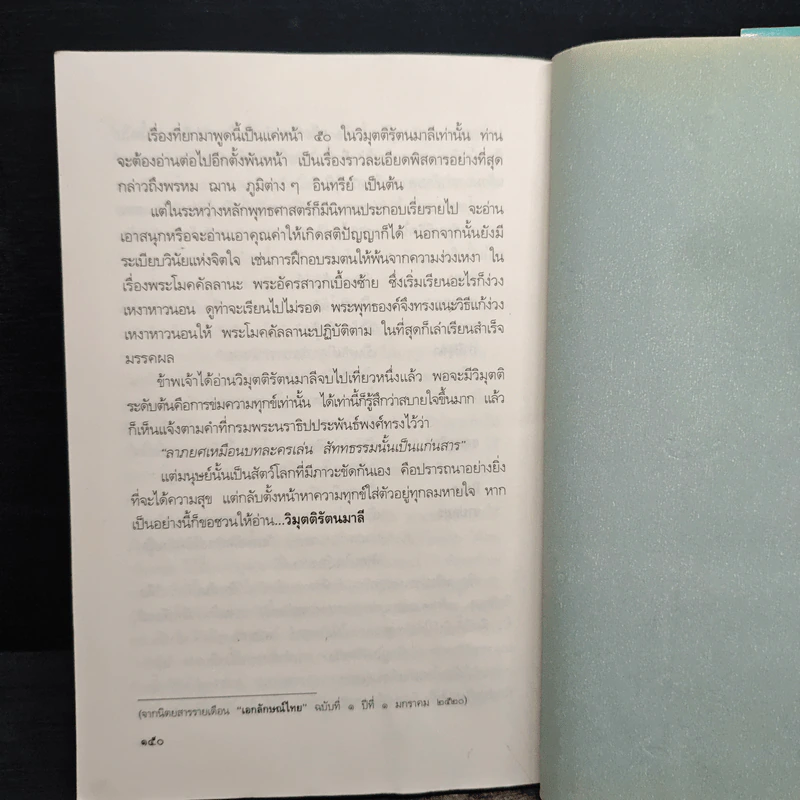 เรื่องที่ยกมาพูดนี้เป็นแค่หน้า ๕๐ ในวิมุตติรัตนมาลีเท่านั้น ท่าน
จะต้องอ่านต่อไปอีกตั้งพันหน้า เป็นเรื่องราวละเอียดพิสดารอย่างที่สุด
กล่าวถึงพรหม ฌาน ภูมิต่าง ๆ อินทรีย์ เป็นต้น
แต่ในระหว่างหลักพุทธศาสตร์ก็มีนิทานประกอบเรี่ยรายไป จะอ่าน
เอาสนุกหรือจะอ่านเอาคุณค่าให้เกิดสติปัญญาก็ได้ นอกจากนั้นยังมี
ระเบียบวินัยแห่งจิตใจ เช่นการฝึกอบรมตนให้พ้นจากความง่วงเหงา ใน
เรื่องพระโมคคัลลานะ พระอัครสาวกเบื้องซ้าย ซึ่งเริ่มเรียนอะไรก็ง่วง
เหงาหาวนอน ดูท่าจะเรียนไปไม่รอด พระพุทธองค์จึงทรงแนะวิธีแก้ง่วง
เหงาหาวนอนให้ พระโมคคัลลานะปฏิบัติตาม ในที่สุดก็เล่าเรียนสำเร็จ
มรรคผล
ข้าพเจ้าได้อ่านวิมุตติรัตนมาลีจบไปเที่ยวหนึ่งแล้ว พอจะมีวิมุตติ
ระดับต้นคือการข่มความทุกข์เท่านั้น ได้เท่านี้ก็รู้สึกว่าสบายใจขึ้นมาก แล้ว
ก็เห็นแจ้งตามคำที่กรมพระนราธิปประพันธ์พงศ์ทรงไว้ว่า
“ลาภยศเหมือนบทละครเล่น สัททธรรมนั้นเป็นแก่นสาร”
แต่มนุษย์นั้นเป็นสัตว์โลกที่มีภาวะขัดกันเอง คือปรารถนาอย่างยิ่ง
ที่จะได้ความสุข แต่กลับตั้งหน้าหาความทุกข์ใส่ตัวอยู่ทุกลมหายใจ หาก
เป็นอย่างนี้ก็ขอชวนให้อ่าน...วิมุตติรัตนมาลี
(จากนิตยสารรายเดือน “เอกลักษณ์ไทย” ฉบับที่ ๑ ปีที่ ๑ มกราคม ๒๕๒๐)
๑๕๐